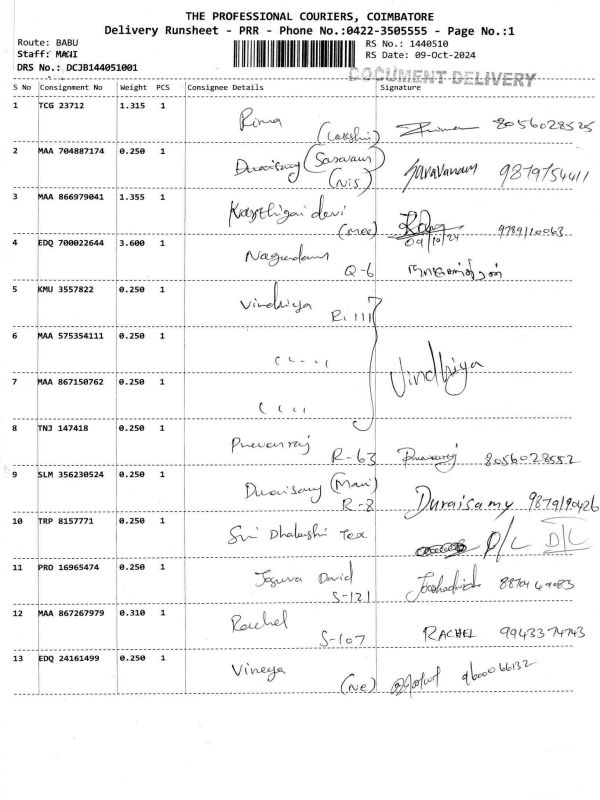 THE PROFESSIONAL COURIERS, COIMBATORE
Delivery Runsheet - PRR - Phone No.:0422-3505555 - Page No.:1
Route: BABU RS No.: 1440510
Staff: MANI RS Date: 09-Oct-2024
DRS No.: DCJB144051001
DOCUMENT DELIVERY
S No Consignment No Weight PCS Consignee Details Signature
1 TCG 23712 1.315 1 Rima (Lakshmi) 8056028525
2 MAA 704887174 0.250 1 Duraisamy (Saravanan) (Nis) Saravanan 9879754411
3 MAA 866979041 1.355 1 Karthigai devi (Mee) 09/10/24 9789110063
4 EDQ 700022644 3.600 1 Q-6
5 KMU 3557822 0.250 1 Vindhiya R-111
6 MAA 575354111 0.250 1 Vindhiya
7 MAA 867150762 0.250 1
8 TNJ 147418 0.250 1 R-63 8056028552
9 SLM 356230524 0.250 1 Duraisamy (Mani) R-8 Duraisamy 9879190426
10 TRP 8157771 0.250 1 Sri Dhalashi Tex D/L D/L
11 PRO 16965474 0.250 1 David S-121
12 MAA 867267979 0.310 1 Rachel S-107 RACHEL 9943374743
13 EDQ 24161499 0.250 1 Vineya (Ne) 9600066132